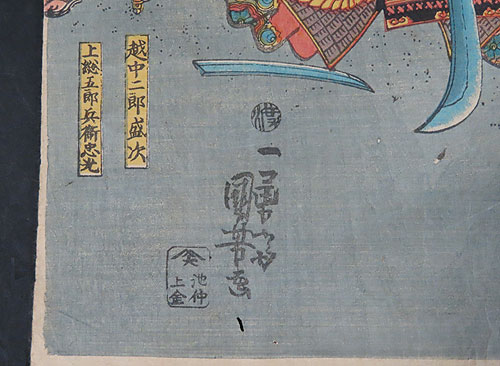 越中二郎盛次
上総五郎兵衛忠光
渡
一勇斎
国芳画
池仲
上金